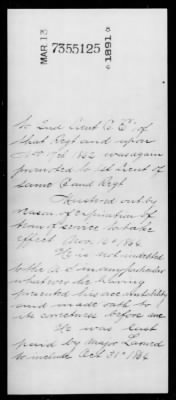 MAR 13 7355125 1891
to 2nd Lieut Co. E. of
that Regt and upon
1862 was again
promoted to 1st Lieut of
same Co and Regt
Mustered out by
reason of expiration of
term of service to take
effect Nov. 1864.
He is not indebted
to the U.S. in any particular
whatever he having
presented his
and made oath to
its correctness before me
He was last
paid by Major Larned
to include Oct 31st 1864.